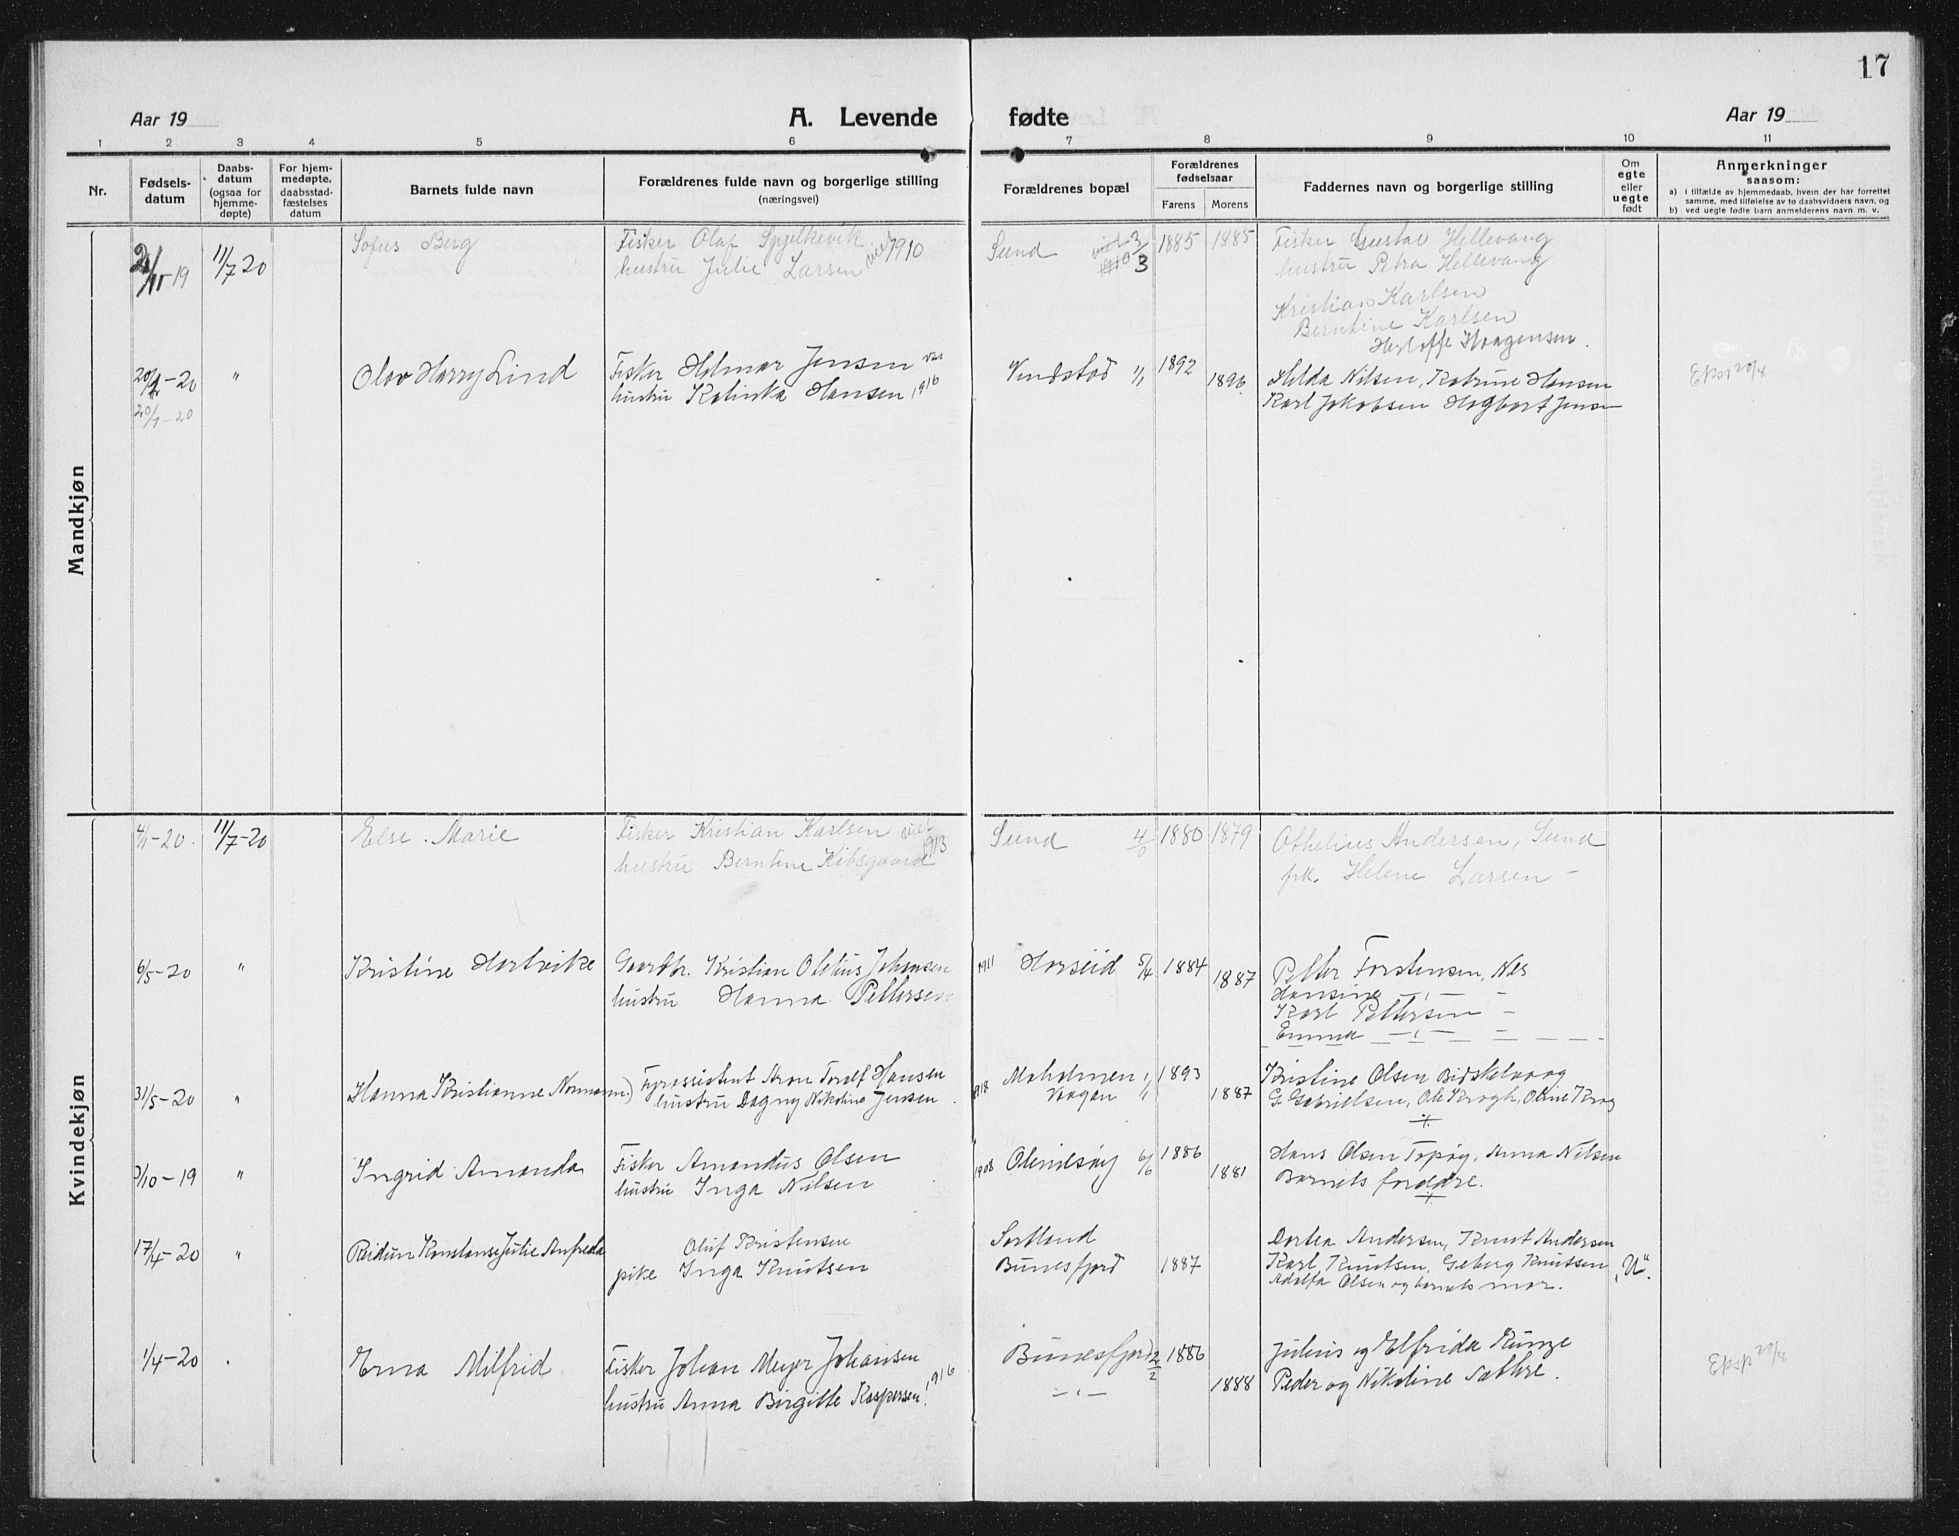 17
Aar 19
A. Levende
fødte
Aar 19
1 2 3 4 5 6 7 8 9 10 11
Nr.
Fødsels-
datum
Daabs-
datum
(ogsaa for
hjemme-
døpte)
For hjem-
medøpte,
daabsstad-
fæstelses
datum
Barnets fulde navn
Forældrenes fulde navn og borgerlige stilling
(næringsvei)
Forældrenes bopæl
Forældrenes
fødselsaar
Farens Morens
Faddernes navn og borgerlige stilling
Om
egte
eller
uegte
født
Anmerkninger
saasom:
a) i tilfælde av hjemmedaab, hvem der har forrettet
samme, med tilføielse av to daabsvidners navn, og
b) ved uegte fødte barn anmelderens navn m. v.
Mandkjøn
11/7 20
Sofus Berg
Fisker Olaf Spjelkevik
hustru Julie Larsen viet 1910
Sund
1885 1885
Fisker Gustav Hellevang
hustru Petra Hellevang
Kristian Karlsen
Berntine Karlsen
Haagensen.
20/1-20
"
Olav Harry Lind
Fisker Helmar Jensen
hustru Kalinka Hansen 1916
Vindstad 1/1
1892 1896
Hilda Nilsen, Katrine Hansen
Karl Jakobsen Hagbart Jensen
Eksp 20/8
Kvindekjøn
4/1-20. 11/7-20
Else Marie
Fisker Kristian Karlsen viet
hustru Berntine Kibsgaard 1913
Sund
1880 1879
Othelius Andersen, Sund
frk. Helene Larsen -
6/5-20 "
Kristine Hartvike
Gaardbr. Kristian Olelius Johansen
hustru Hanna Pettersen
1911 Horseid 5/4
1884 1887
Petter Torstensen, Nes
Hansine -"- -
Karl Pettersen -
Emma -"- -
31/5-20 "
Hanna Kristianne Normann
Fyrassistent Aron Toralf Hansen
hustru Dagny Nikoline Jensen
1918 Moholmen 1/1
Vaagan
1893 1887
Kristine Olsen
G. Gabrielsen, Ole Krogh, Oline Krog
/10-19 "
Ingrid Amanda
Fisker Amandus Olsen
hustru Inga Nilsen
1908 Olenilsøy 6/6
1886 1881
Hans Olsen Topøy, Anna Nilsen
Barnets foreldre.
17/4-20 "
Reidun Konstanse Julie Anfreda
Oluf Kristensen
pike Inga Knutsen
Sortland
Bunesfjord
1887
Dortea Andersen, Knut Andersen
Karl Knutsen, Geberg Knutsen
Adolfa Olsen og barnets mor.
"U".
1/4-20
Erna Milfrid
Fisker Johan Meyer Johansen
hustru Anna Birgitte Kaspersen! 1916
Bunesfjord 2/2
-"-
1886 1888
Julius og Elfrida Kunze
Peder og Nikoline Sathre.
Eksp 20/8